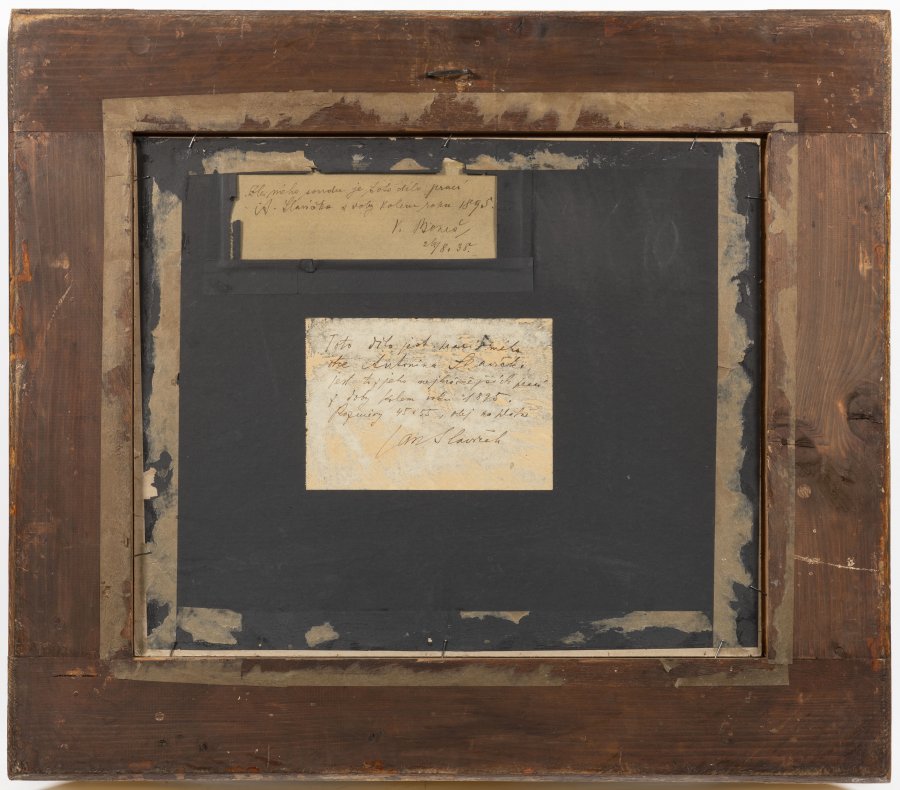 Dle mého soudu je toto dílo prací
A. Slavíčka z doby kolem roku 1895.
V. Beneš
26/8. 35.
Toto dílo jest prací mého
otce Antonína Slavíčka,
jest to z jeho nejkrásnějších prací
z doby kolem roku 1895.
Rozměry 45x55, olej na plátně
Jan Slavíček